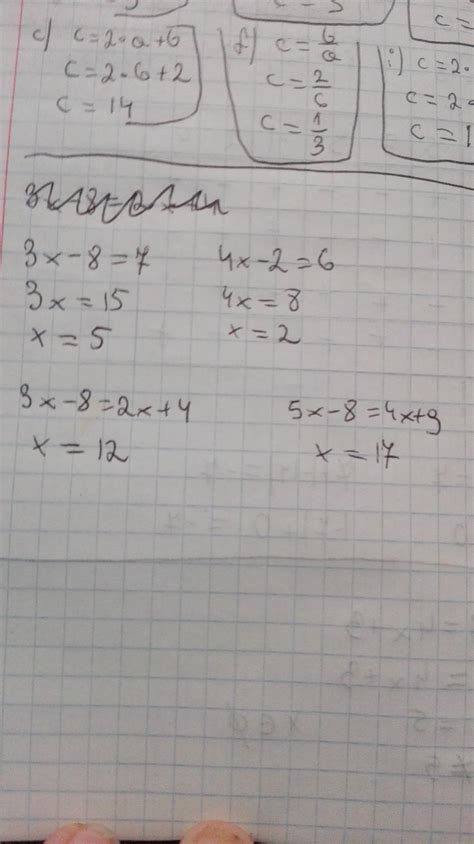 c) c=2·a+b
c=2·6+2
c=14
f) c=b/a
c=2/6
c=1/3
i) c=2·
c=2·
c=1
3x-8=7
3x=15
x=5
4x-2=6
4x=8
x=2
3x-8=2x+4
x=12
5x-8=4x+9
x=17